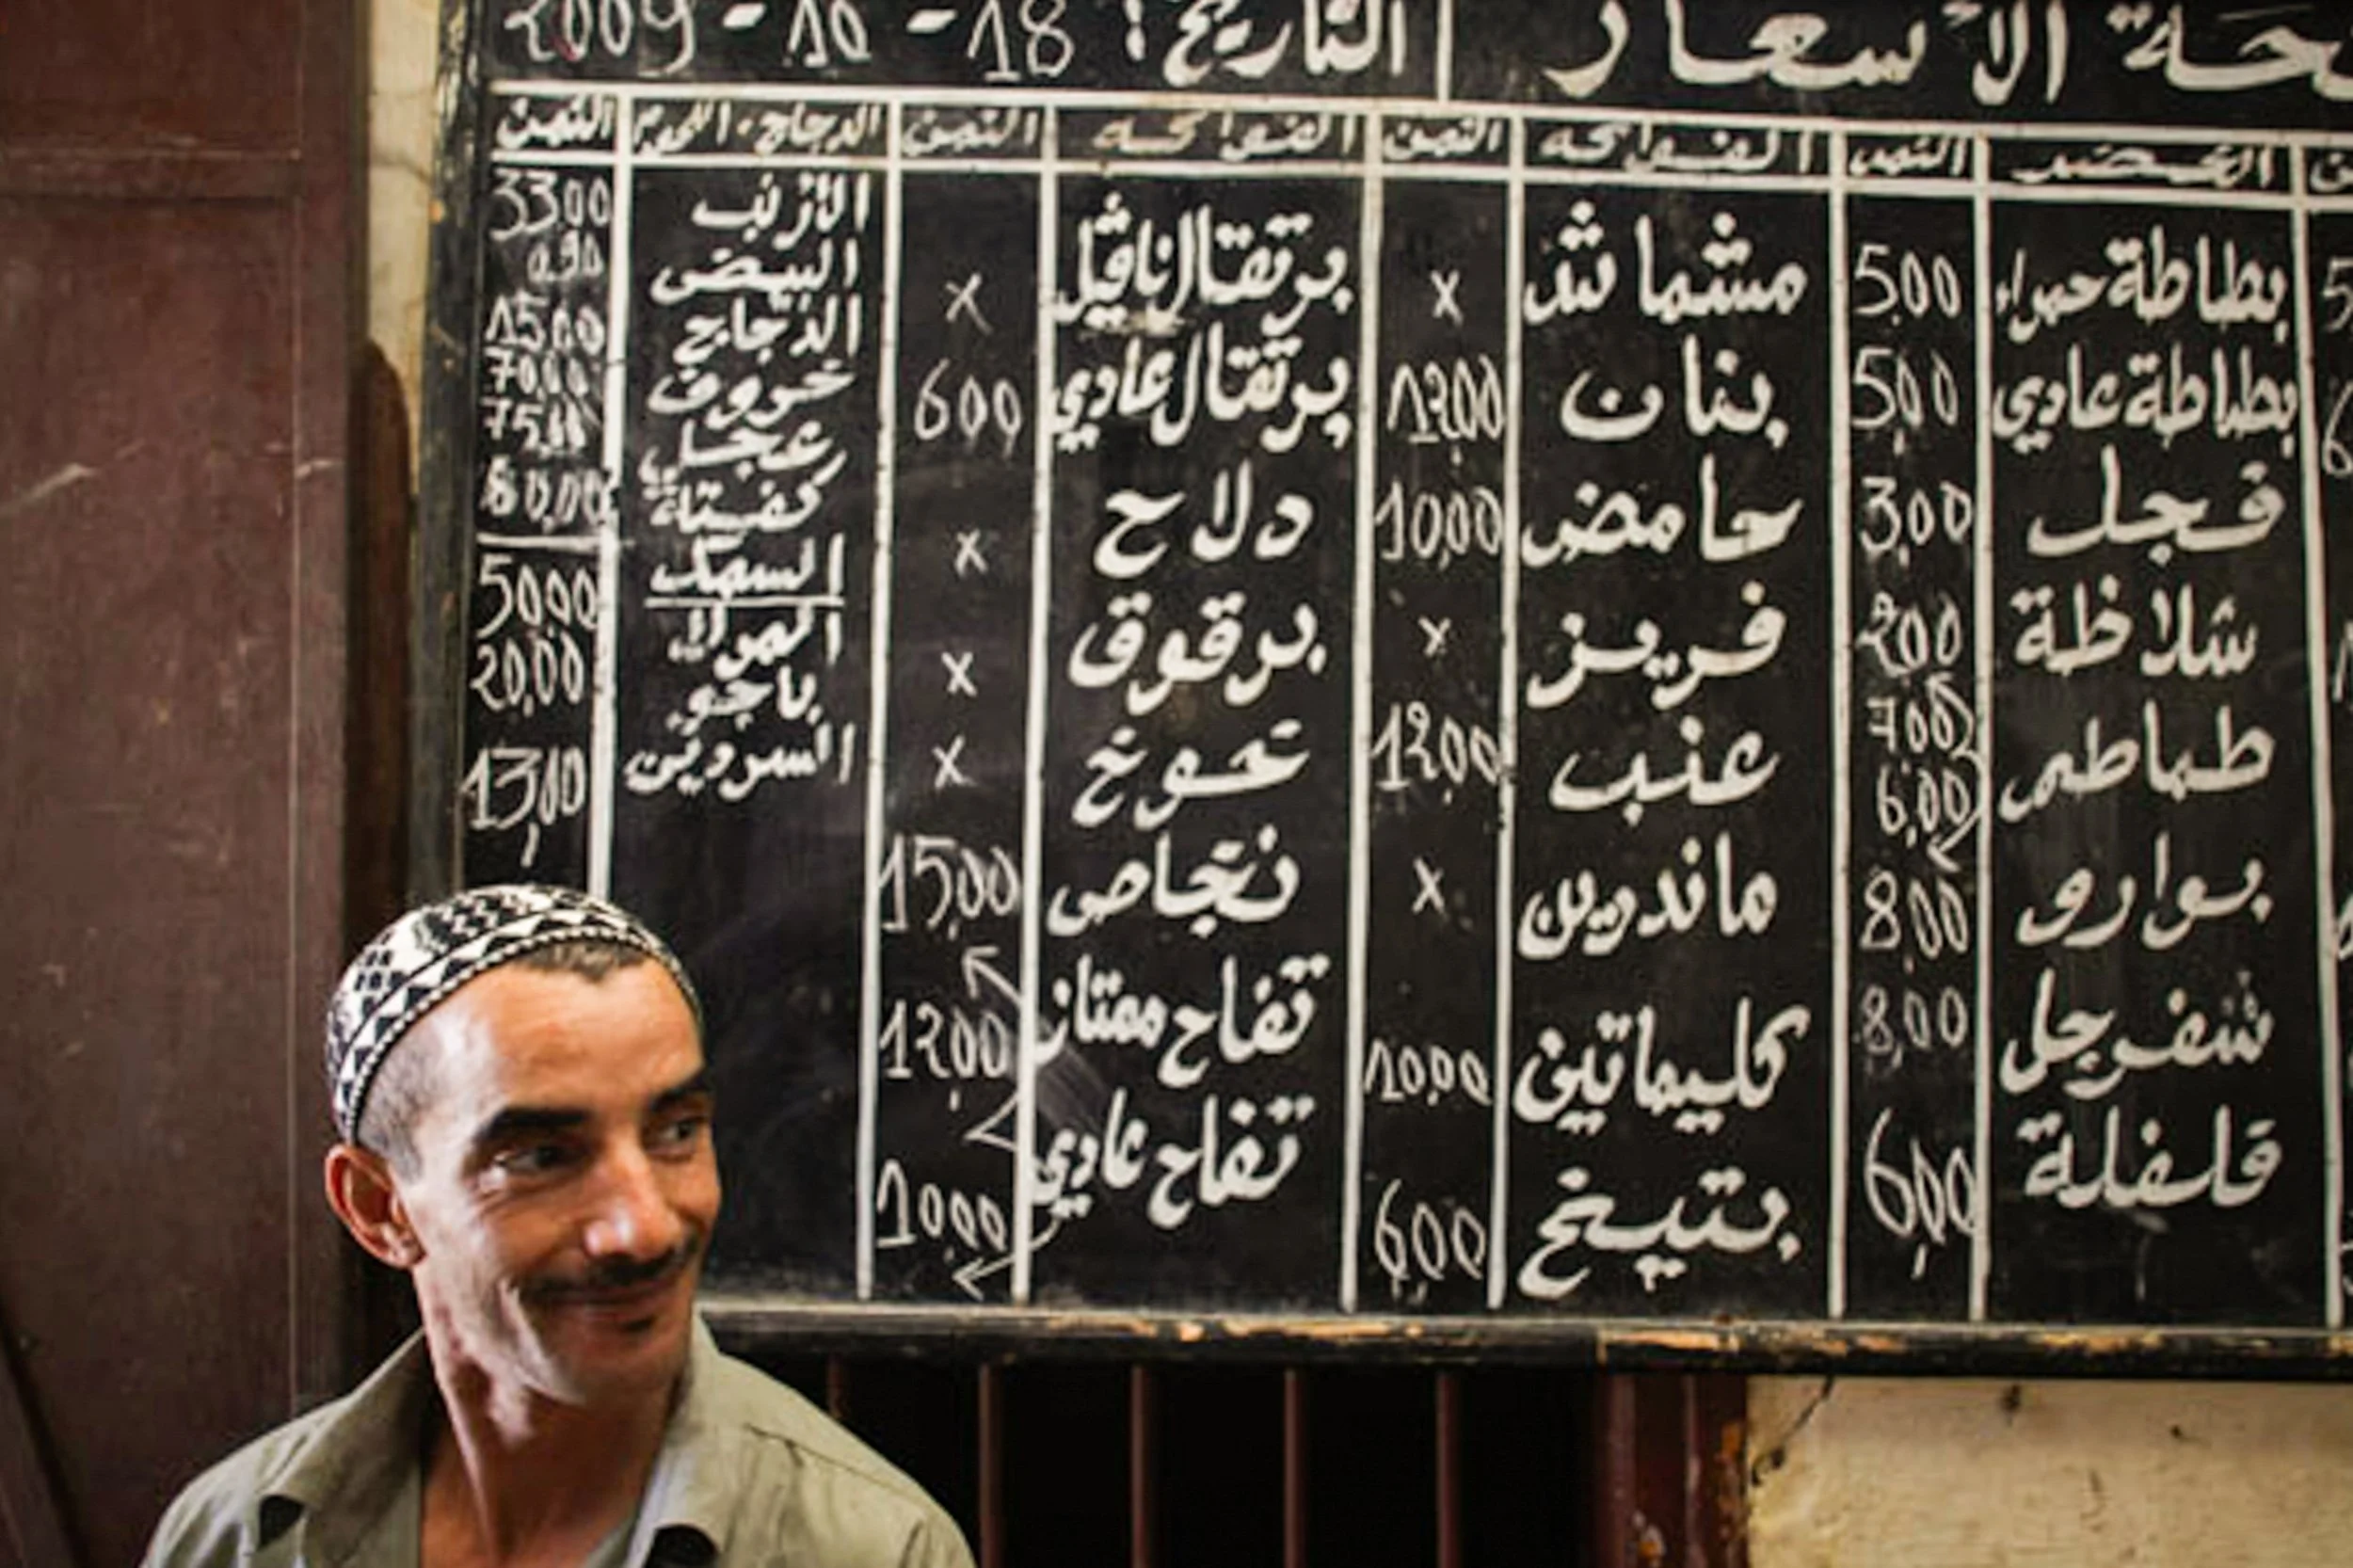 الأسعار
التاريخ: 18 - 10 - 2009
الخضر
الثمن
الفواكه
الثمن
الفواكه
الثمن
الدجاج، اللحوم
الثمن
بطاطة حمراء 5,00
بطاطة عادي 5,00
فجل 3,00
شلاظة 2,00
طماطم 7,00
6,00
بوارو 8,00
شفرجل 8,00
فلفلة 6,00
مشماش x
بنان 12,00
حامض 10,00
فريز x
عنب 12,00
ماندرين x
كليماتين 10,00
بتيخ 6,00
برتقال ناڤيل x
برتقال عادي 6,00
دلاح x
برقوق x
خوخ x
نجاص 15,00
تفاح ممتاز 12,00
تفاح عادي 10,00
الأرنب 33,00
البيض 0,90
الدجاج 15,00
خروف 70,00
عجل 75,00
كفتة
السمك
50,00
باجو 20,00
السردين